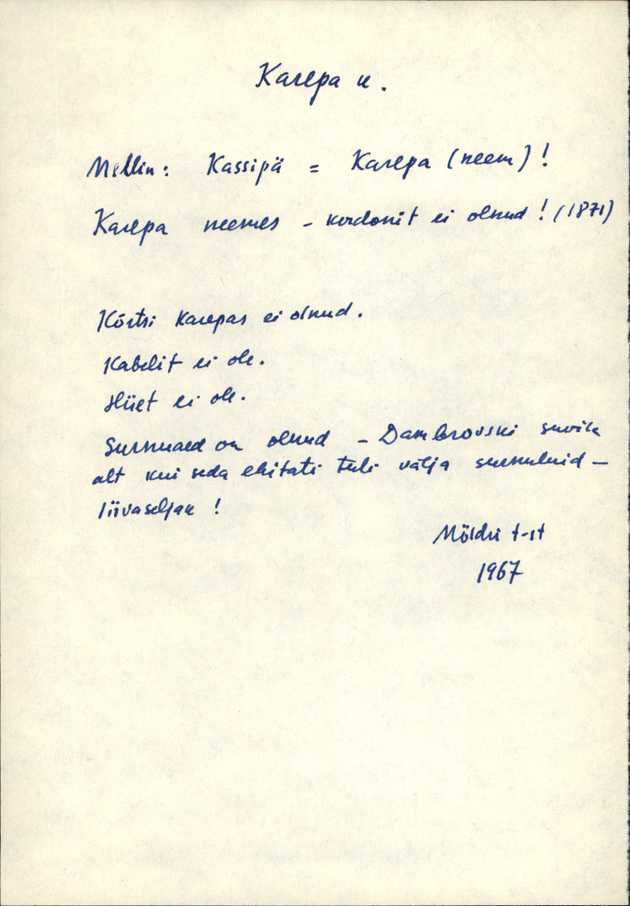 Karepa k.
Mellin: Kassipä = Karepa (neem)!
Karepa neemes - kordonit ei olnud! (1871)
Kõrtsi Karepas ei olnud.
Kabelit ei ole.
Hiiet ei ole.
Surnuaed on olnud - Dambrovski suvila
alt kui seda ehitati tuli välja surnuluid -
liivaseljak!
Möldri t-st
1967